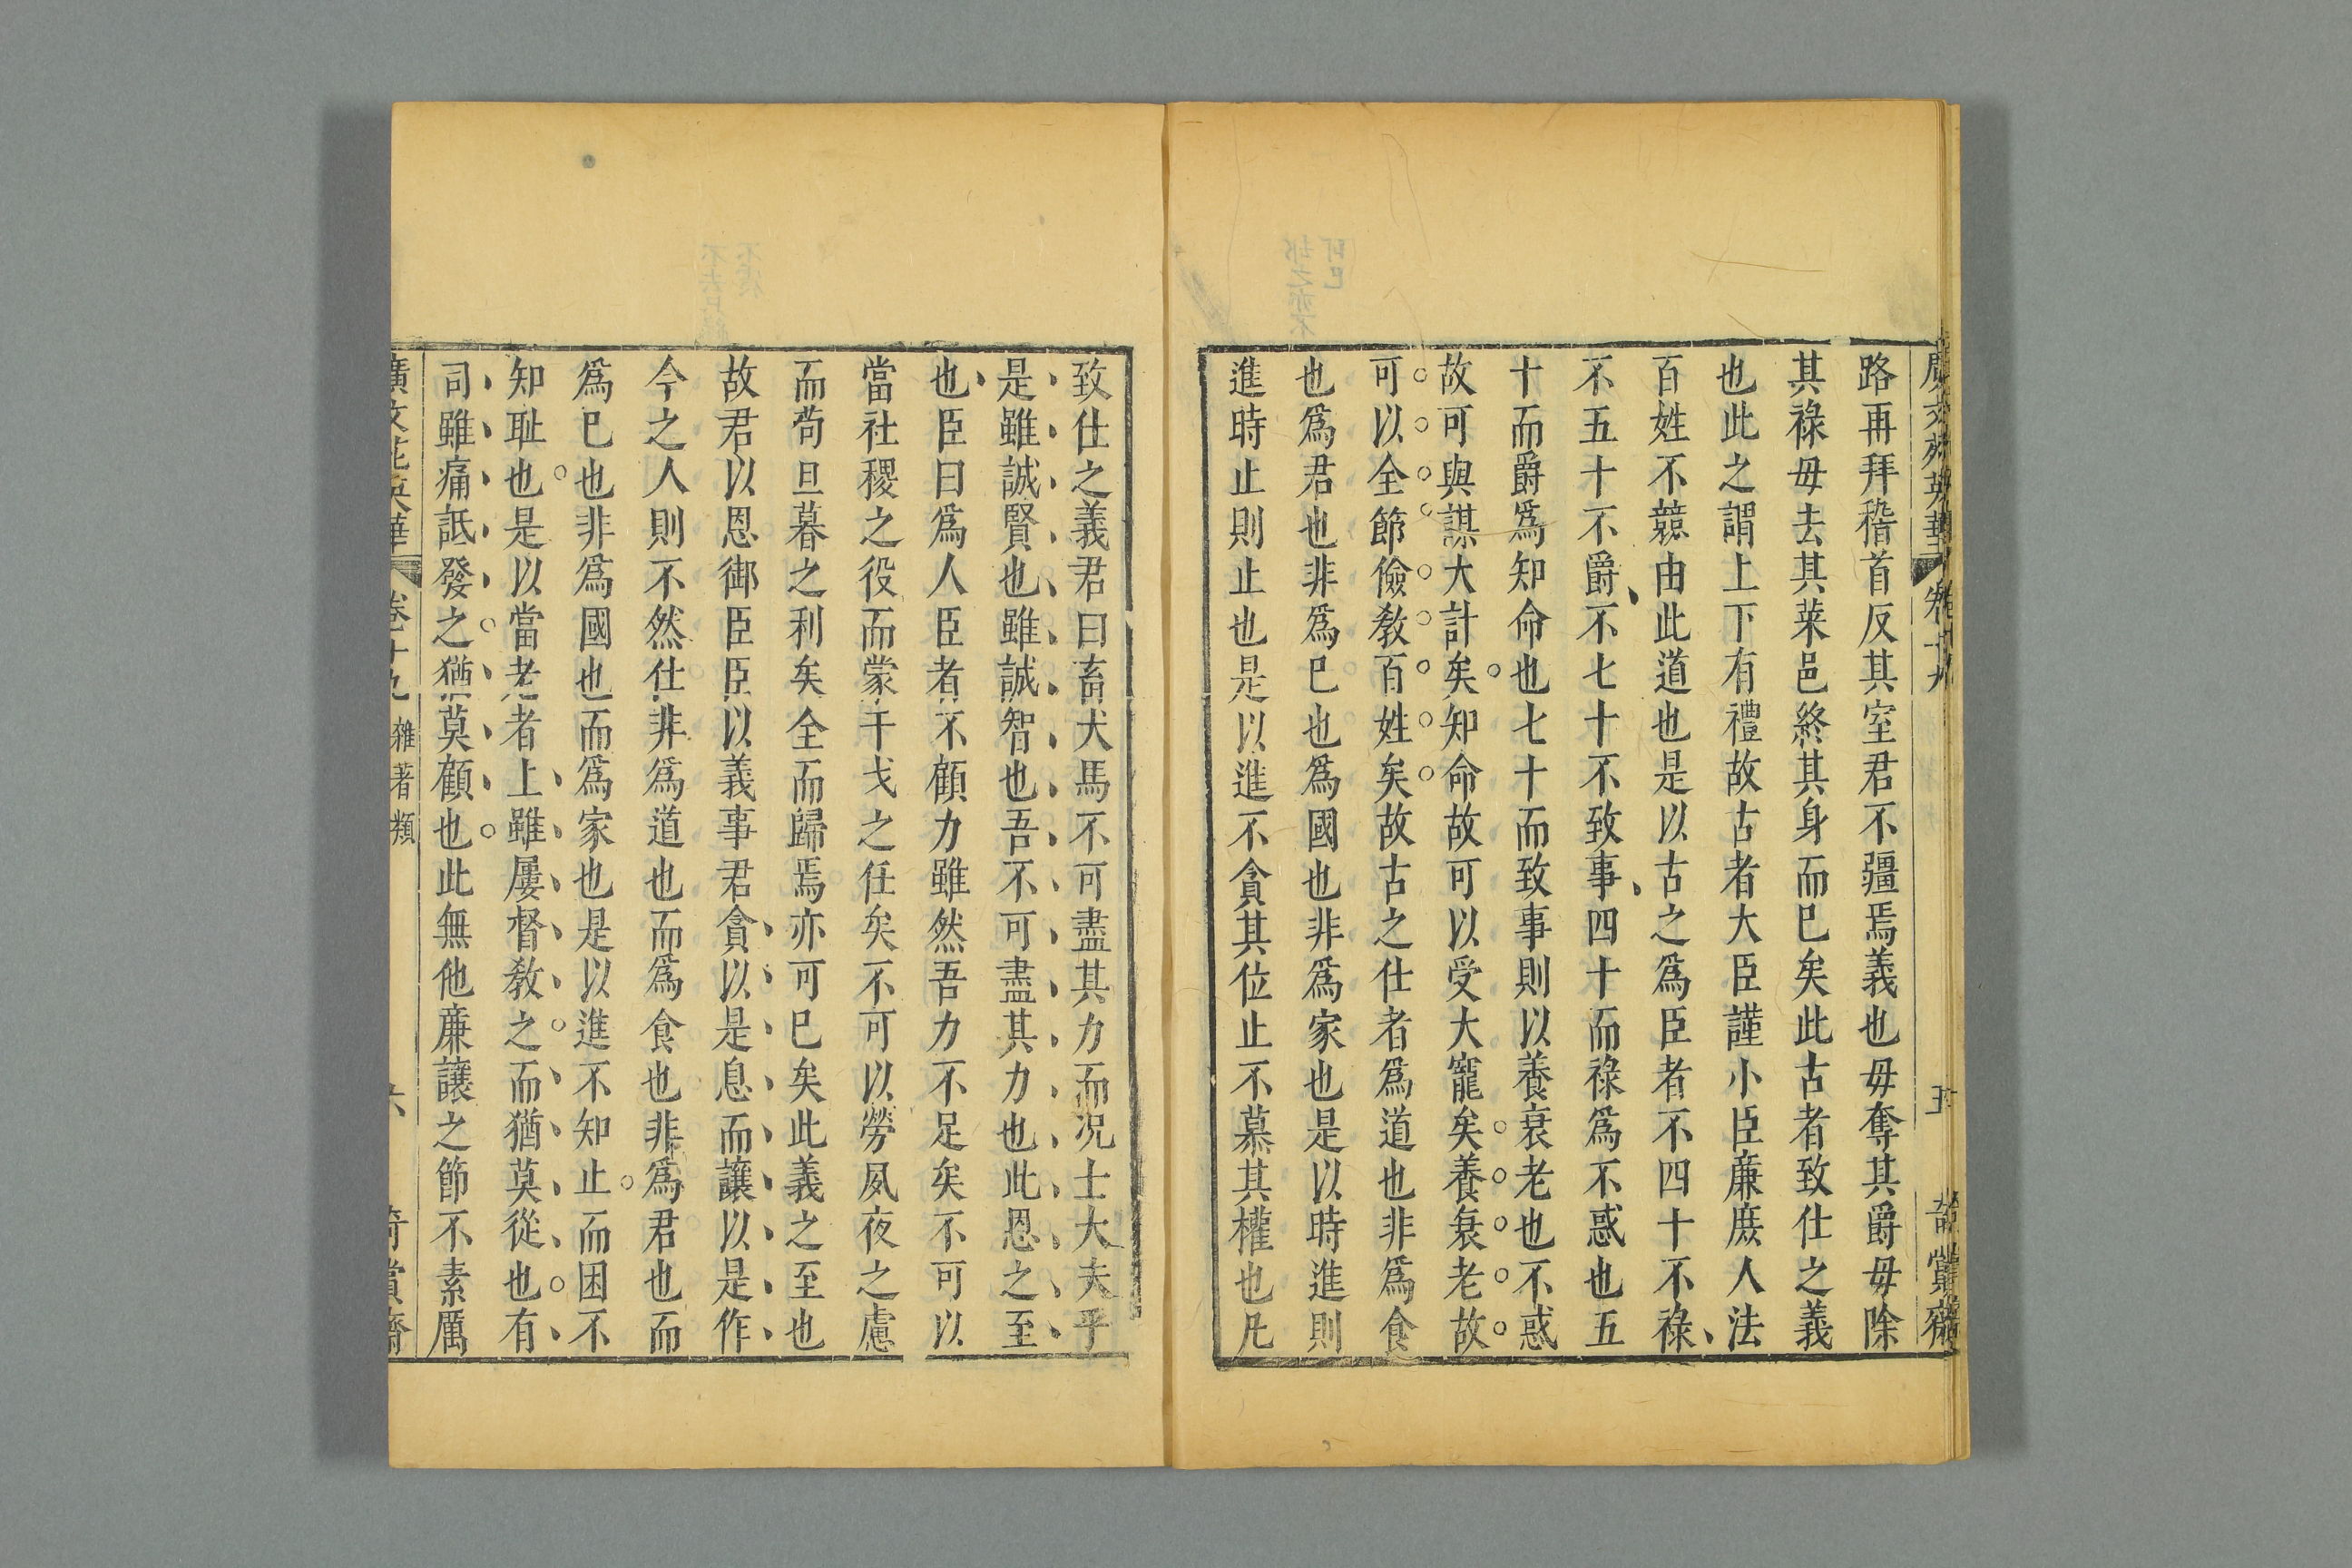 廣文苑英華 卷十九 五 竒賞齋
路再拜稽首反其室君不疆焉義也毋奪其爵毋除
其祿毋去其菜邑終其身而巳矣此古者致仕之義
也此之謂上下有禮故古者大臣謹小臣廉庶人法
百姓不競由此道也是以古之爲臣者不四十不祿
不五十不爵不七十不致事四十而祿爲不惑也五
十而爵爲知命也七十而致事則以養衰老也不惑
故可與謀大計矣知命故可以受大寵矣養衰老故
可以全節儉敎百姓矣故古之仕者爲道也非爲食
也爲君也非爲巳也爲國也非爲家也是以時進則
進時止則止也是以進不貪其位止不慕其權也凡
致仕之義君曰畜犬馬不可盡其力而況士大夫乎
是雖誠賢也雖誠智也吾不可盡其力也此恩之至
也臣曰爲人臣者不顧力雖然吾力不足矣不可以
當社稷之役而蒙干戈之任矣不可以勞夙夜之慮
而苟旦暮之利矣全而歸焉亦可巳矣此義之至也
故君以恩御臣臣以義事君貪以是息而讓以是作
今之人則不然仕非爲道也而爲食也非爲君也而
爲巳也非爲國也而爲家也是以進不知止而困不
知耻也是以當老者上雖屢督敎之而猶莫從也有
司雖痛詆發之猶莫顧也此無他廉讓之節不素厲
廣文苑英華 卷十九 雜著類 六 竒賞齋